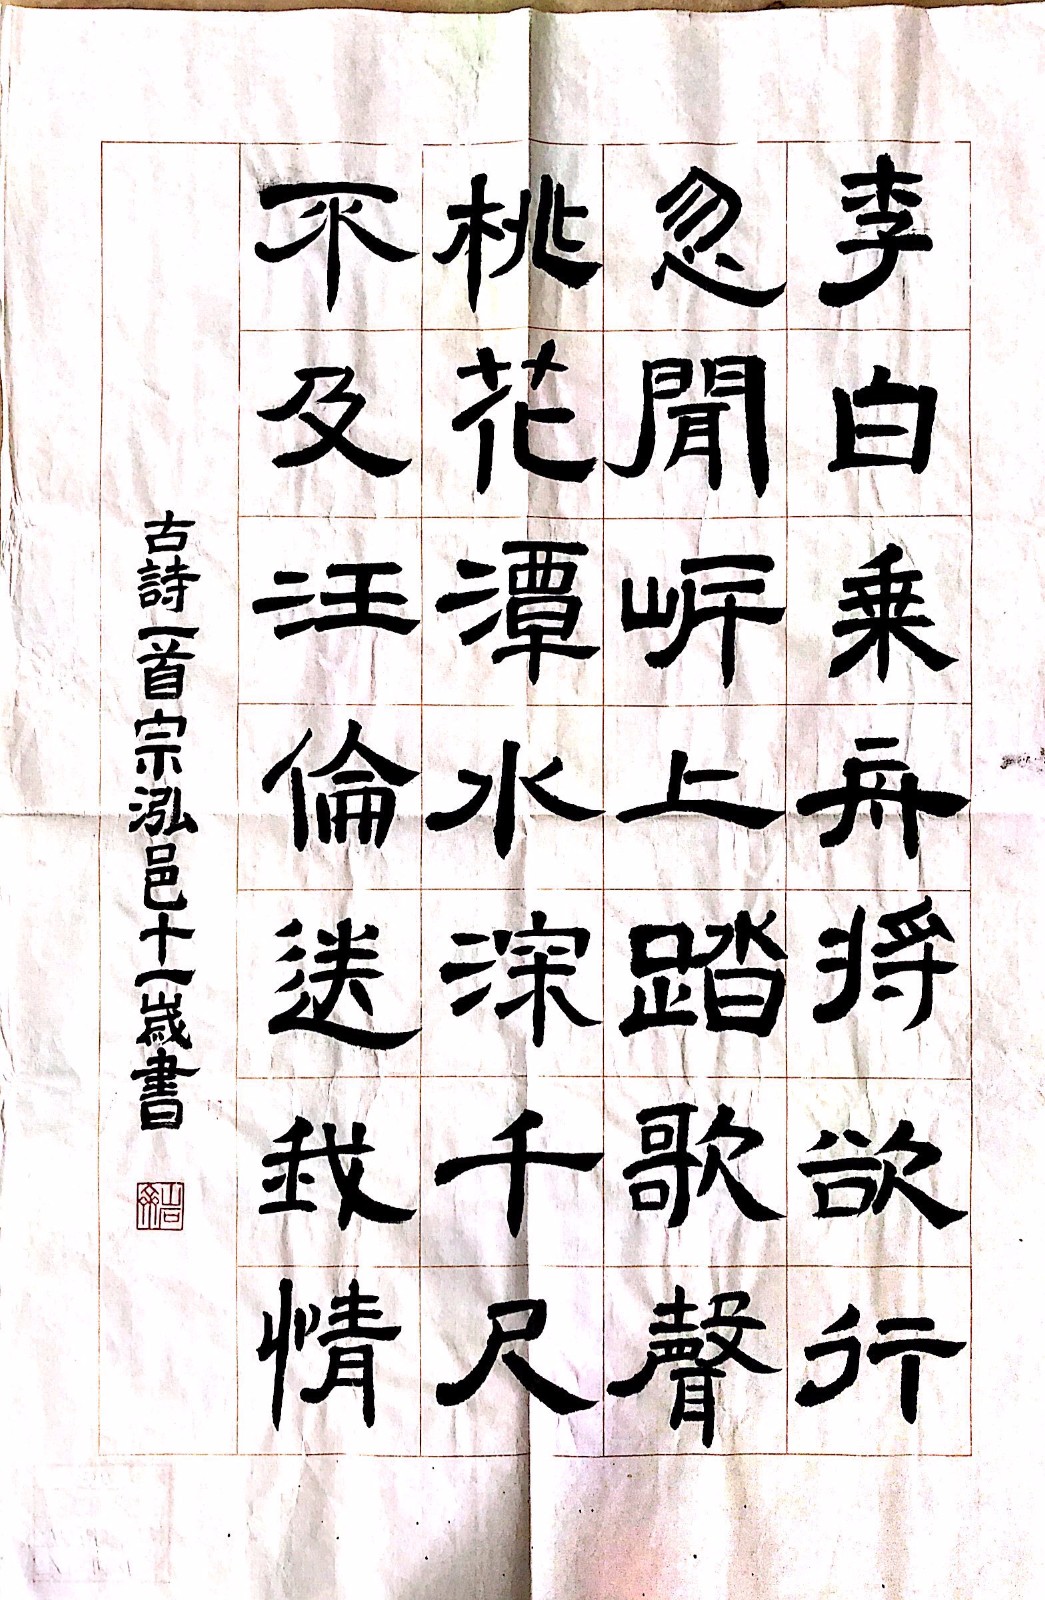 李白乗舟将欲行
忽聞岍上踏歌聲
桃花潭水深千尺
不及汪倫送我情
古詩一首宗泓邑十一歲書